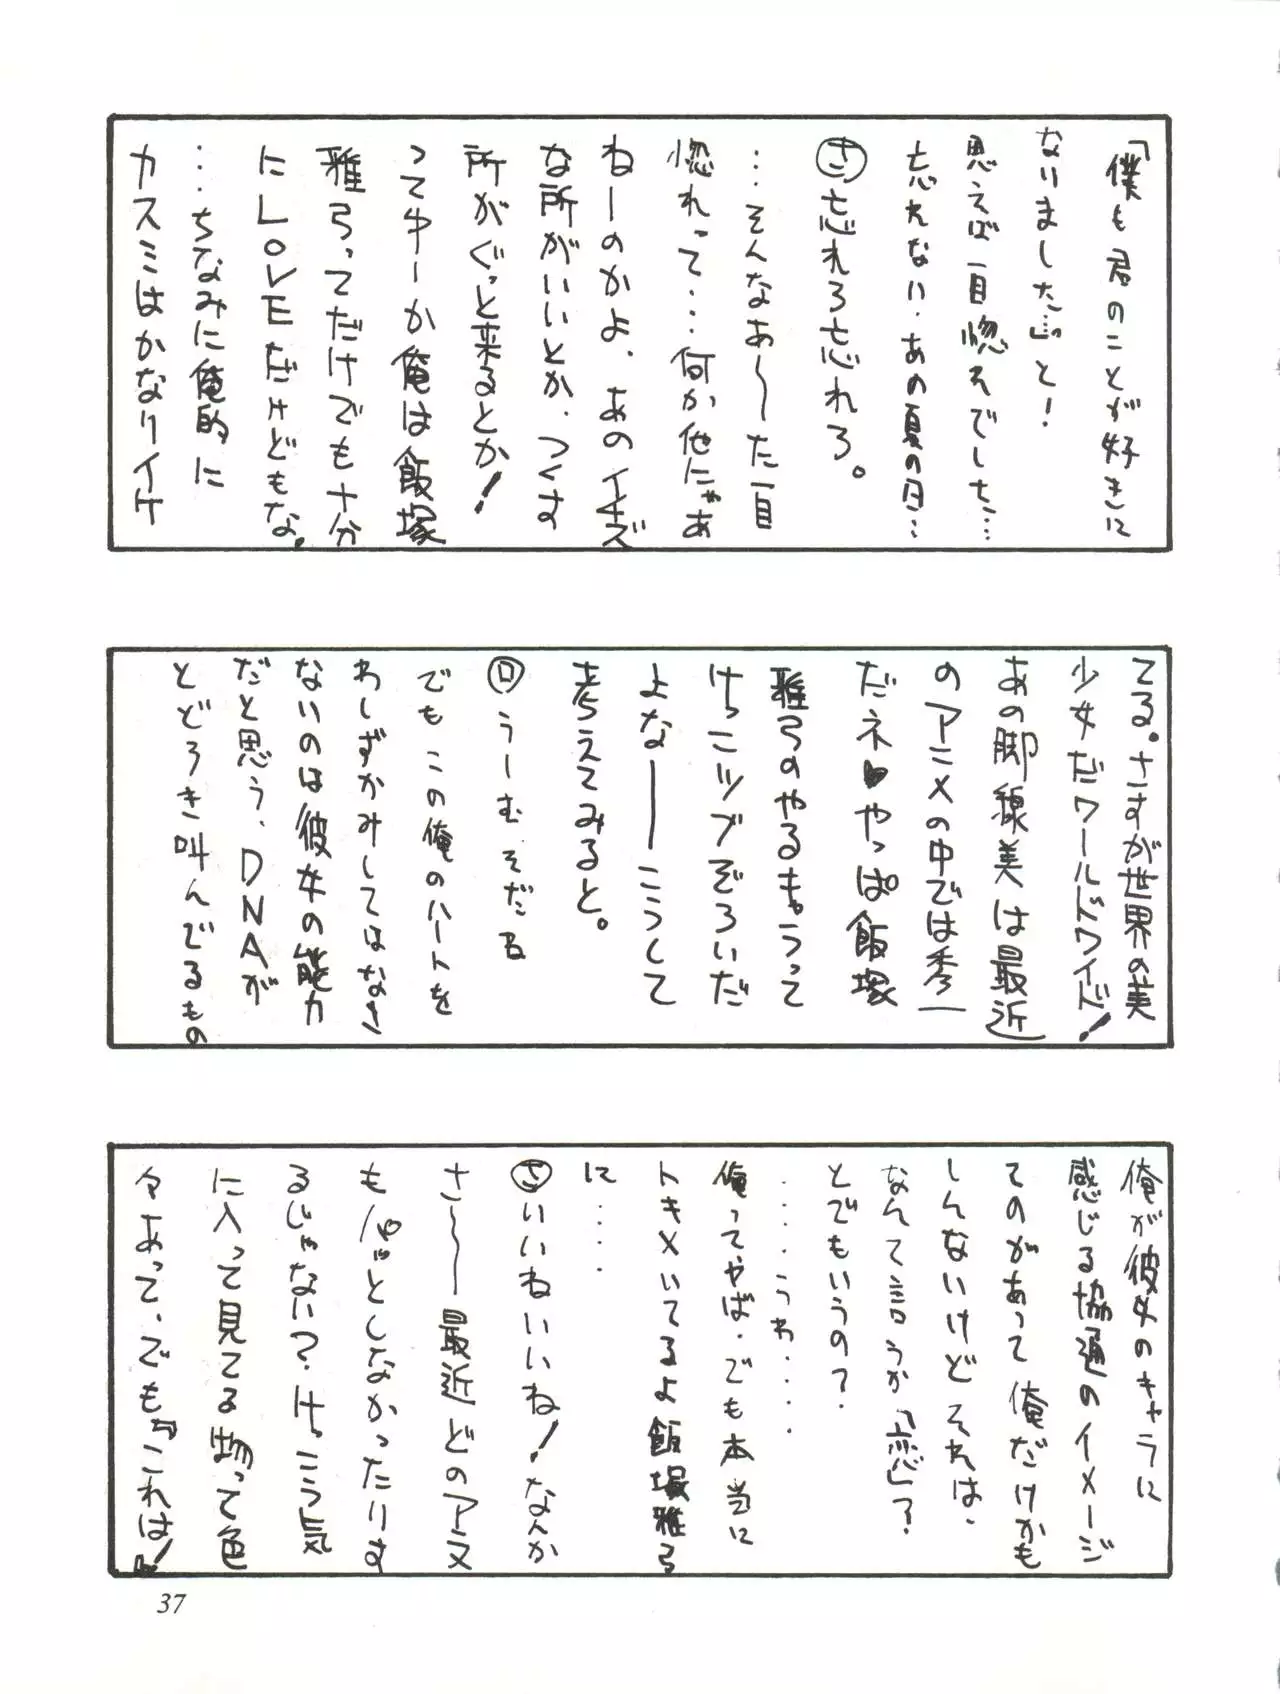 「僕も君のことが好きに
なりました…。」と!
思えば一目惚れでした…
忘れない・あの夏の日…
㋚忘れろ忘れろ。
…そんなあ〜た一目
惚れって…何か他にゃあ
ねーのかよ、あのイケズ
な所がいいとか、つくす
所がぐっと来るとか!
ってゆーか俺は飯塚
雅弓ってだけでも十分
にLOVEだけどもな。
…ちなみに俺的に
カスミはかなりイケ
てる。さすが世界の美
少女だワールドワイド!
あの脚線美は最近
のアニメの中では秀一
だネ♥やっぱ飯塚
雅弓のやるキャラって
けっこツブぞろいだ
よなーーこうして
考えてみると。
㋺うーむそだね
でもこの俺のハートを
わしずかみしてはなさ
ないのは彼女の能力
だと思う、DNAが
とどろき叫んでるもの
俺が彼女のキャラに
感じる協通のイメージ
てのがあって俺だけかも
しんないけどそれは、
なんて言うか「恋」?
とでもいうの?
....うわ....
俺ってやば・でも本当に
トキメいてるよ飯塚雅弓
に....
㋚いいねいいね!なんか
さ〜ー最近どのアニメ
もパッとしなかったりす
るじゃない?けっこう気
に入って見てる物って色
々あって、でも『これは!』
37